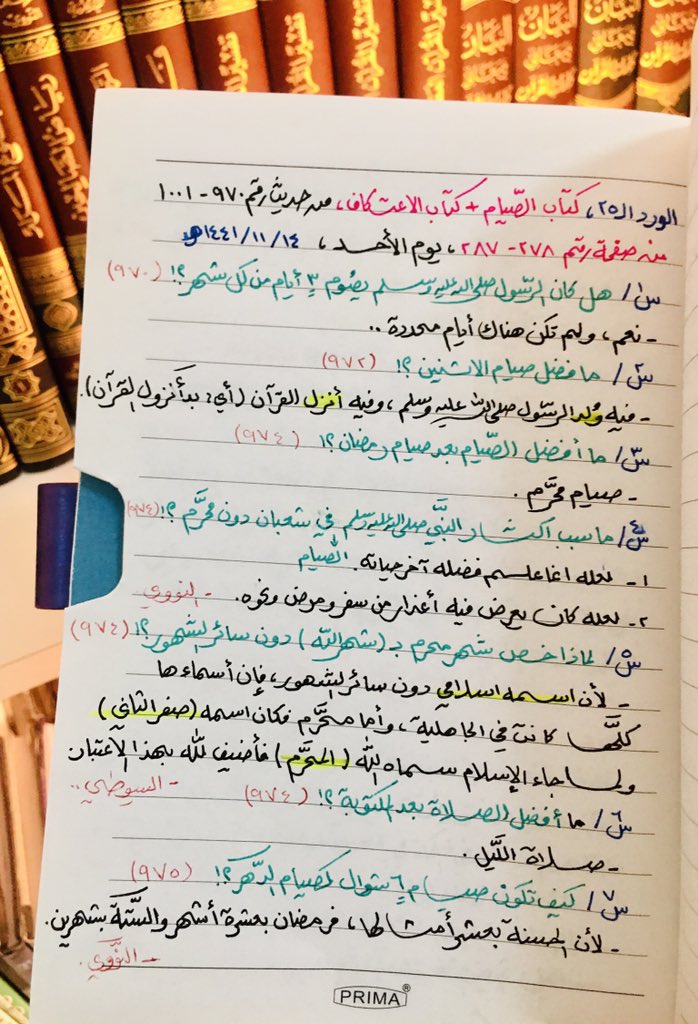 الورد الـ٢٥، كتاب الصّيام + كتاب الاعتكاف، من حديث رقم ٩٧٠ - ١٠٠١
من صفحة رقم ٢٧٨ - ٢٨٧، يوم الأحد، ١٤٤١/١١/١٤هـ
س١/ هل كان الرسول صلى الله عليه وسلم يصوم ٣ أيام من كل شهر؟! (٩٧٠)
- نعم، ولم تكن هناك أيام محددة ..
س٢/ ما فضل صيام الاثنين؟! (٩٧٢)
- فيه وُلد الرسول صلى الله عليه وسلم، وفيه أنزل القرآن (أي: بدأ نزول القرآن).
س٣/ ما أفضل الصّيام بعد صيام رمضان؟! (٩٧٤)
- صيام محرَّم.
س٤/ ما سبب اكثار النَّبي صلى الله عليه وسلم في شعبان دون محرَّم؟! (٩٧٤)
الصّيام
١- لعله انما علم فضله آخر حياته.
٢- لعله كان يعرض فيه أعذار من سفر ومرض ونحوه. - النووي
س٥/ لماذا خص شهر محرم بـ (شهر الله) دون سائر الشهور؟! (٩٧٤)
- لأن اسمه اسلامي دون سائر الشهور، فإن أسماءها
كلَّها كانت في الجاهلية، وأما محرَّم فكان اسمه (صفر الثاني)
ولما جاء الإسلام سماه الله (المحرَّم) فأضيف لله بهذا الاعتبار
- السيوطي ..
س٦/ ما أفضل الصلاة بعد المكتوبة؟! (٩٧٤)
- صلاة اللَّيل.
س٧/ كيف تكون صيام ٦ شوال كصيام الدَّهر؟! (٩٧٥)
- لأن الحسنة بعشر أمثالها، فرمضان بعشرة أشهر والستَّة بشهرين.
- النَّووي.
PRIMA®